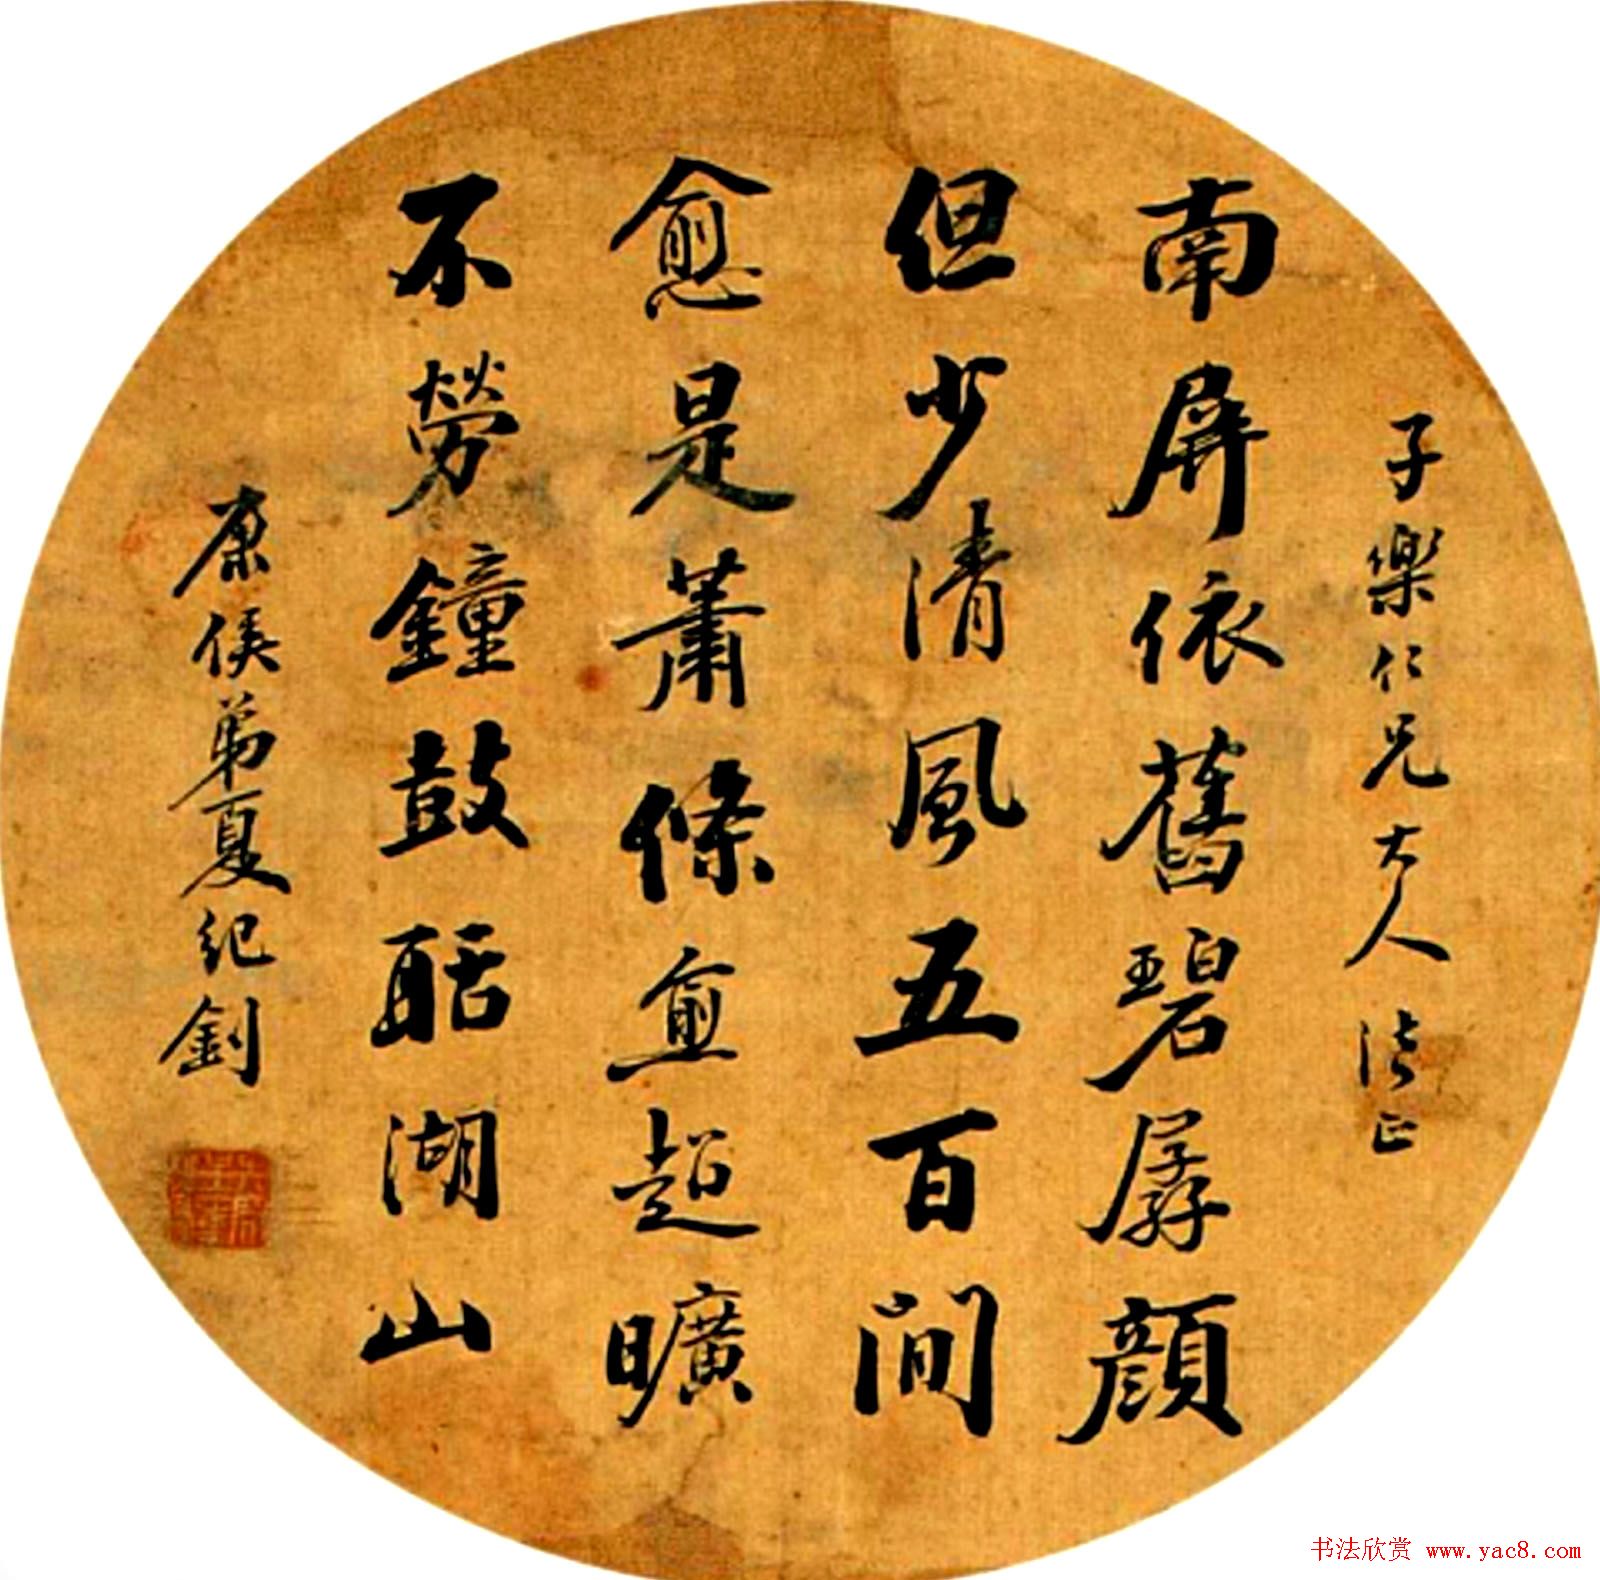 子樂仁兄大人法正
南屏依舊碧孱顏
但少清風五百間
愈是蕭條愈超曠
不勞鐘鼓聒湖山
康侯弟夏紀釗
书法欣赏 www.yac8.com